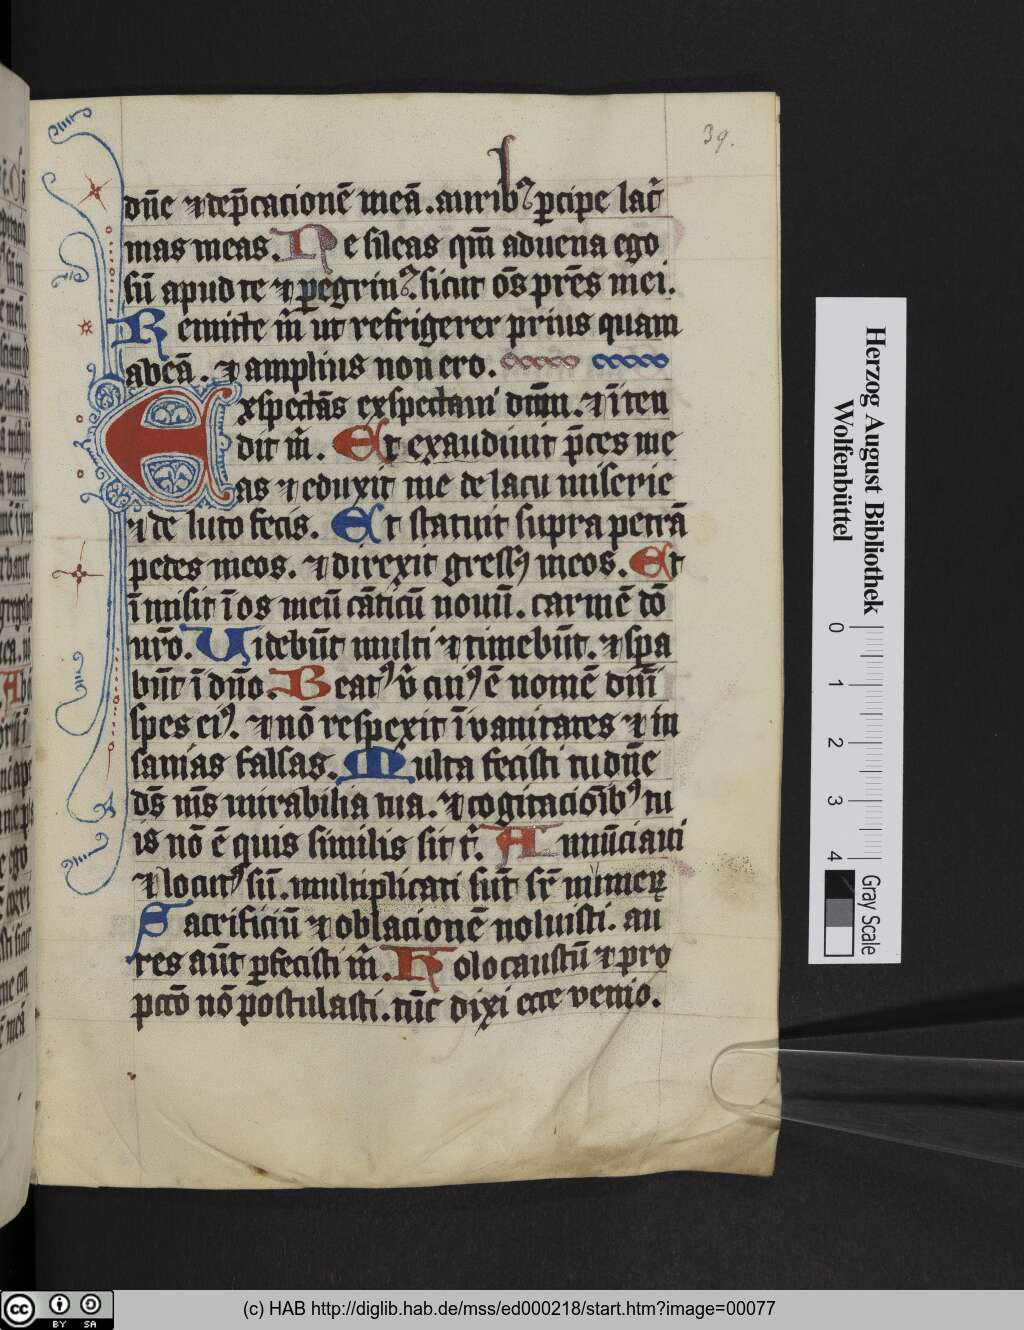 39.
dn̄e ⁊ dep̄cacionē meā. aurib⁹ ꝑcipe lac̄
mas meas. Ne sileas qm̄ aduena ego
sū apud te ⁊ ꝑegrin⁹. sicut ōs prēs mei.
Remitte m̄ ut refrigerer prius quam
abeā. ⁊ amplius non ero.
Exspectās exspectaui dn̄m. ⁊ īten
dit m̄. Et exaudiuit p̄ces me
as ⁊ eduxit me de lacu miserie
⁊ de luto fecis. Et statuit supra petrā
pedes meos. ⁊ direxit gress⁹ meos. Et
īmisit ī os meū cāticū nouū. carmē dō
nr̄o. Uidebūt multi ⁊ timebūt. ⁊ spa
būt ī dn̄o. Beat⁹ v̄ cui⁹ ē nomē dn̄i
spes ei⁹. ⁊ nō respexit ī vanitates ⁊ in
sanias falsas. Multa fecisti tu dn̄e
ds̄ ms̄ mirabilia tua. ⁊ cogitaciōib⁹ tu
is nō ē quis similis sit t̄. Annūciaui
⁊ locut⁹ sū. multiplicati sūt sr̄ numeꝝ
Sacrificiū ⁊ oblacionē noluisti. au
res aūt ꝑfecisti m̄. Holocaustū ⁊ pro
pctō nō postulasti. tūc dixi ecce venio.
Herzog August Bibliothek
Wolfenbüttel
0 1 2 3 4
Gray Scale
cc BY SA
(c) HAB http://diglib.hab.de/mss/ed000218/start.htm?image=00077